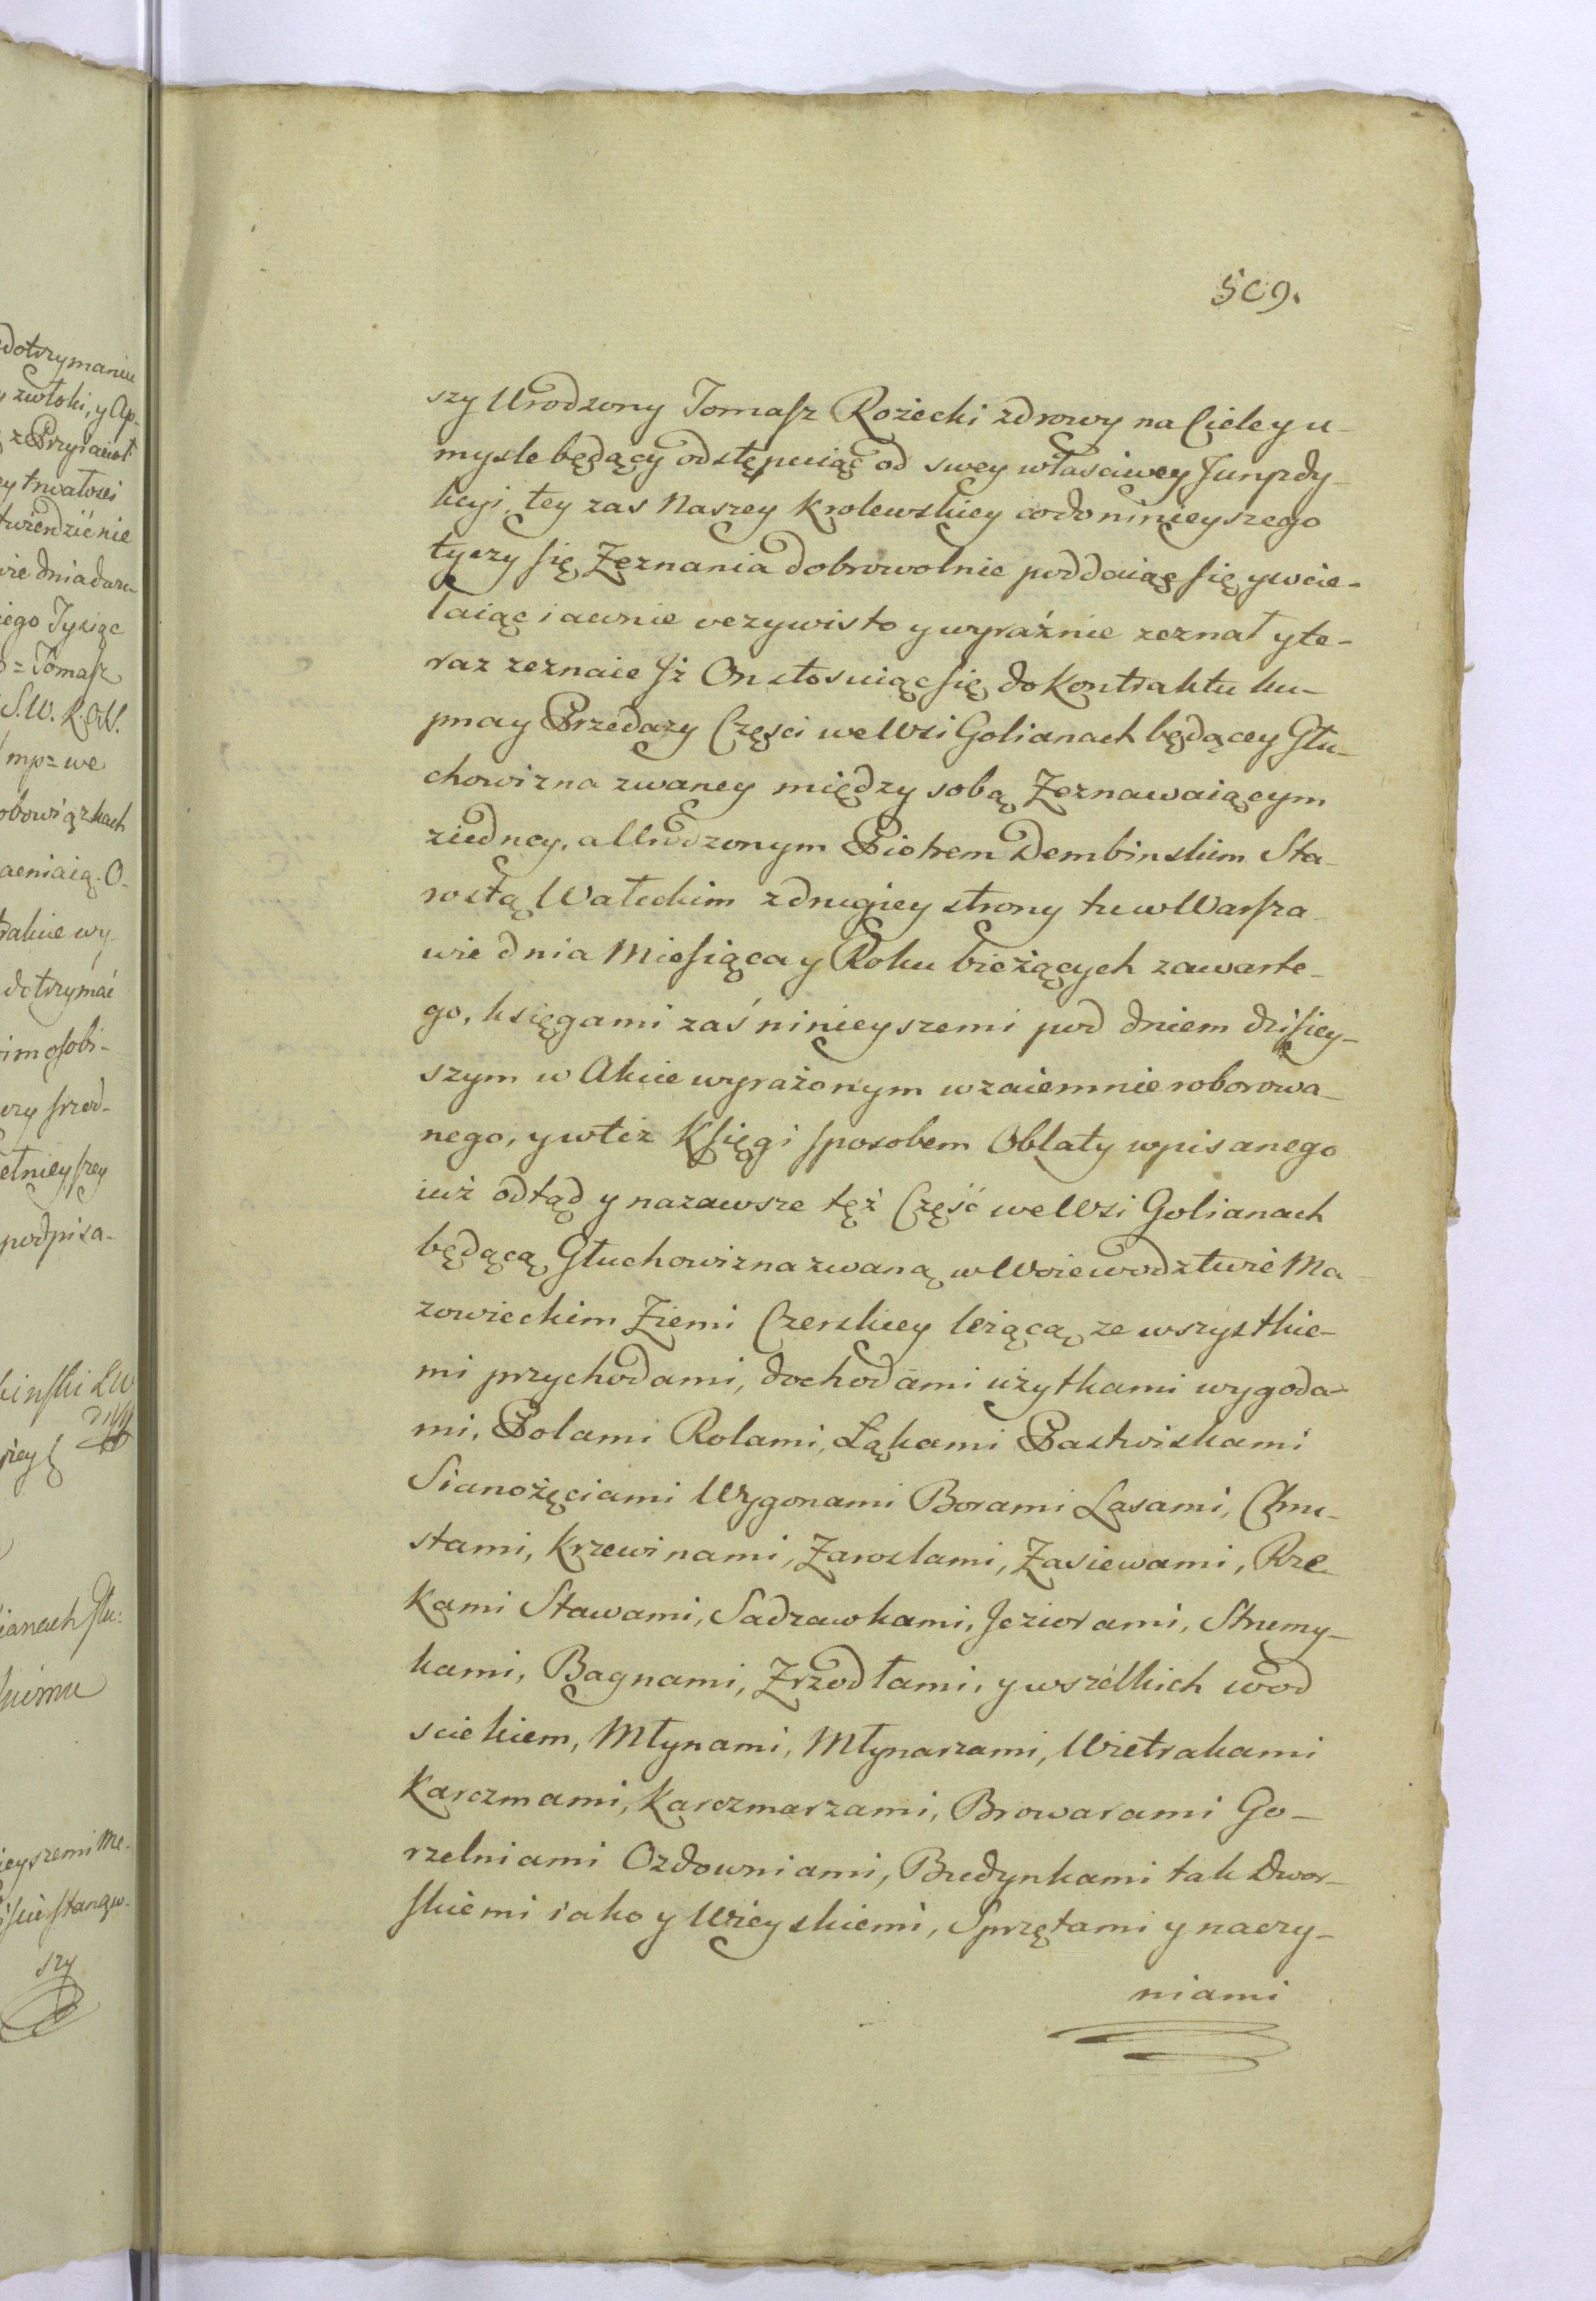 509.
szy Urodzony Tomasz Rożecki zdrowy na Ciele y u-
mysle będący odstępuiąc od swey własciwey Juryzdy-
kcyi, tey zas Naszey Krolewskiey co do ninieyszego
tyczy się Zeznania dobrowolnie poddaiąc się y wcie-
laiąc iawnie oczywisto y wyraźnie zeznał y te-
raz zeznaie Jż On stosuiąc się do Kontraktu ku-
pna y Przedaży Częsci we Wsi Golianach będącey Głu-
chowizna zwaney między sobą Zeznawaiącym
z iedney, a Urodzonym Piotrem Dembinskim Sta-
rostą Wałeckim z drugiey strony tu w Warsza-
wie dnia Miesiąca y Roku bieżących zawarte-
go, księgami zaś ninieyszemi pod dniem dzisiey-
szym w Akcie wyrażonym wzaiemnie roborowa-
nego, y w też Księgi sposobem Oblaty wpisanego
iuż odtąd y nazawsze tęż Część we Wsi Golianach
będącą Głuchowizna zwaną w Woiewodztwie Ma-
zowieckim Ziemi Czerskiey leżącą ze wszystkie-
mi przychodami, dochodami użytkami wygoda-
mi, Polami Rolami, Łąkami Pastwiskami
Sianożęciami Wygonami Borami Lasami, Chru-
stami, Krzewinami, Zaroslami, Zasiewami, Rze-
kami Stawami, Sadzawkami, Jeziorami, Strumy-
kami, Bagnami, Zrzodłami, y wszelkich wod
sciekiem, Młynami, Młynarzami, Wietrakami
Karczmami, Karczmarzami, Browarami Go-
rzelniami Ozdowniami, Budynkami tak Dwor-
skiemi iako y Wieyskiemi, Sprzętami y naczy-
niami